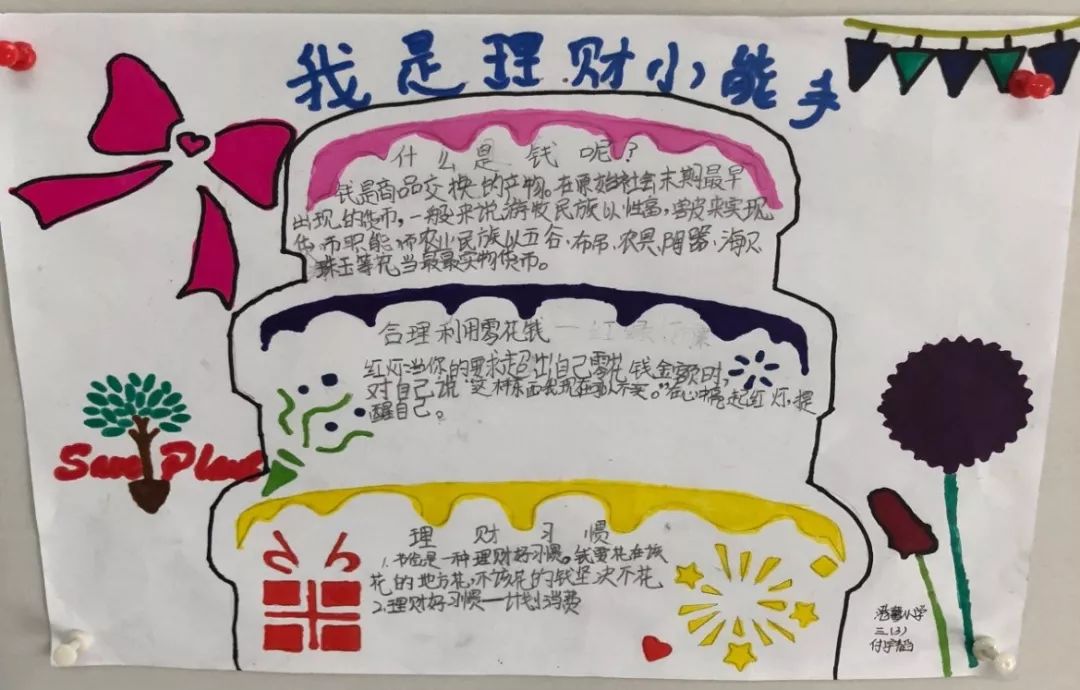 我是理财小能手
什么是钱呢?
钱是商品交换的产物。在原始社会末期最早
出现的货币,一般来说游牧民族以牲畜,兽皮来实现
货币职能,而农业民族以五谷、布帛、农具、陶器、海贝
珠玉等充当最最实物货币。
合理利用零花钱 一 红绿
红灯:当你的要求超出自己零花钱金额时,
对自己说“这种东西我现在可以不买。”在心中亮起红灯,提
醒自己。
理财习惯
1.节俭是一种理财好习惯。钱要花在该
花的地方花,不该花的钱坚决不花
2.理财好习惯一计划消费
Save Plant
小学
三(3)
付宇